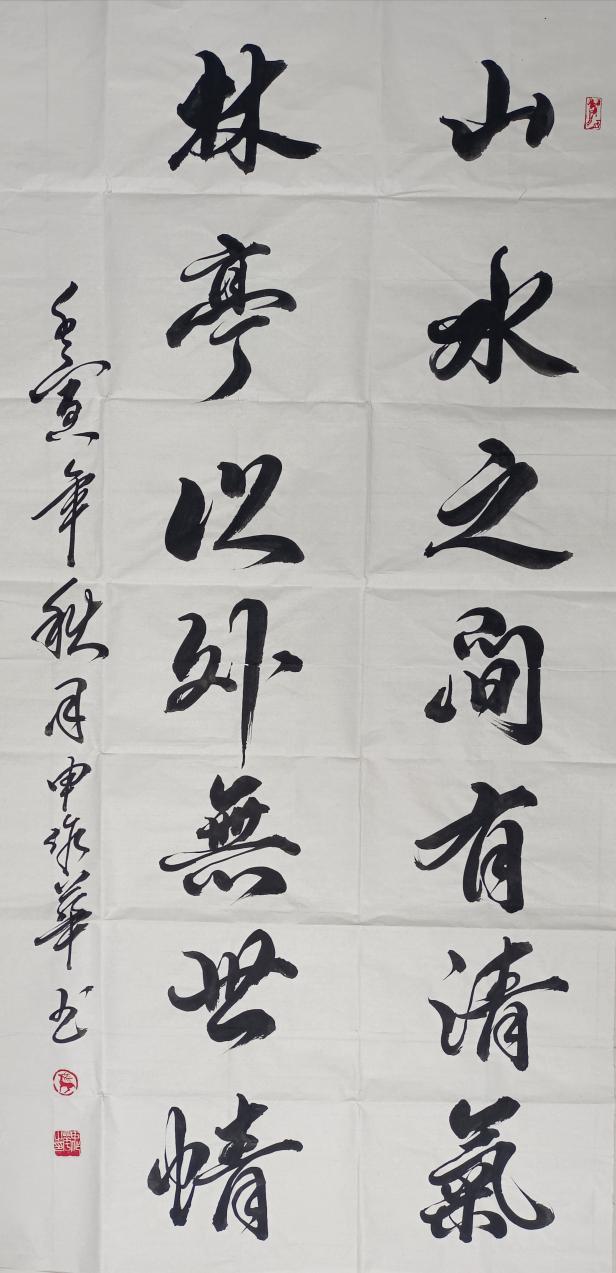 山水之間有清氣
林亭以外無世情
壬寅年秋月申華书